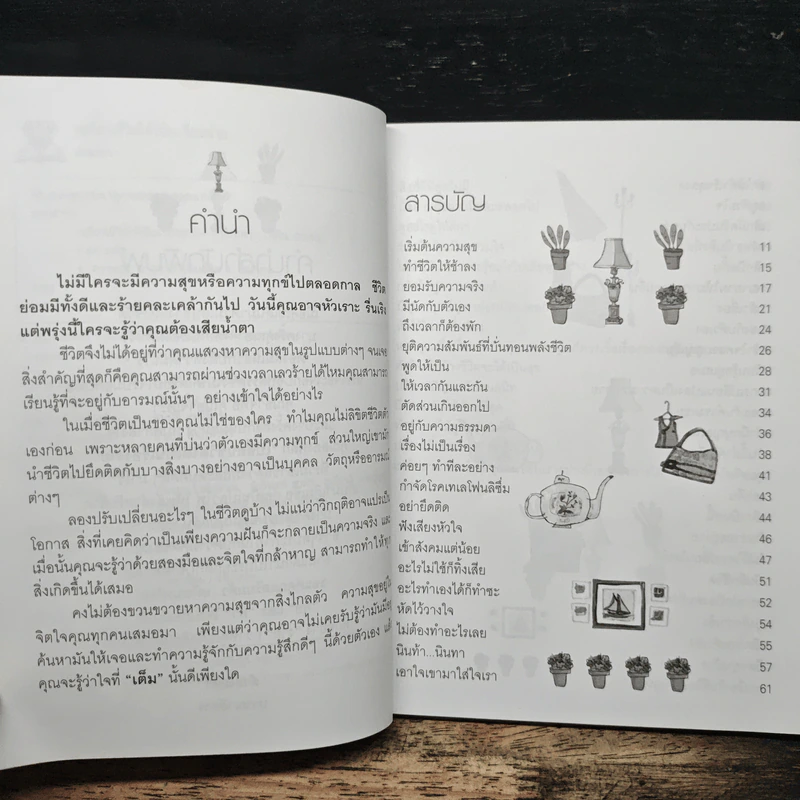 คำนำ
ไม่มีใครจะมีความสุขหรือความทุกข์ไปตลอดกาล ชีวิต
ย่อมมีทั้งดีและร้ายคละเคล้ากันไป วันนี้คุณอาจหัวเราะ รื่นเริง
แต่พรุ่งนี้ใครจะรู้ว่าคุณต้องเสียน้ำตา
ชีวิตจึงไม่ได้อยู่ที่ว่าคุณแสวงหาความสุขในรูปแบบต่างๆ จนเจอ
สิ่งสำคัญที่สุดก็คือคุณสามารถผ่านช่วงเวลาเลวร้ายได้ไหมคุณสามารถ
เรียนรู้ที่จะอยู่กับอารมณ์นั้นๆ อย่างเข้าใจได้อย่างไร
ในเมื่อชีวิตเป็นของคุณไม่ใช่ของใคร ทำไมคุณไม่ลิขิตชีวิต
เองก่อน เพราะหลายคนที่บ่นว่าตัวเองมีความทุกข์ ส่วนใหญ่เขามัก
นำชีวิตไปยึดติดกับบางสิ่งบางอย่างอาจเป็นบุคคล วัตถุหรืออารมณ์
ต่างๆ
ลองปรับเปลี่ยนอะไรๆ ในชีวิตดูบ้าง ไม่แน่ว่าวิกฤติอาจแปรเป็น
โอกาส สิ่งที่เคยคิดว่าเป็นเพียงความฝันก็จะกลายเป็นความจริง
เมื่อนั้นคุณจะรู้ว่าด้วยสองมือและจิตใจที่กล้าหาญ สามารถทำให้
สิ่งเกิดขึ้นได้เสมอ
คงไม่ต้องขวนขวายหาความสุขจากสิ่งไกลตัว ความสุขอยู่
จิตใจคุณทุกคนเสมอมา เพียงแต่ว่าคุณอาจไม่เคยรับรู้ว่ามันมี
ค้นหามันให้เจอและทำความรู้จักกับความรู้สึกดีๆ นี้ด้วยตัวเอง
คุณจะรู้ว่าใจที่ "เต็ม" นั้นดีเพียงใด
สารบัญ
เริ่มต้นความสุข 11
ทำชีวิตให้ช้าลง 15
ยอมรับความจริง 17
มีนัดกับตัวเอง 21
ถึงเวลาก็ต้องพัก 24
ยุติความสัมพันธ์ที่บั่นทอนพลังชีวิต 26
พูดให้เป็น 28
ให้เวลากันและกัน 31
ตัดส่วนเกินออกไป 34
อยู่กับความธรรมดา 36
เรื่องไม่เป็นเรื่อง 38
ค่อยๆ ทำทีละอย่าง 41
กำจัดโรคเทเลโฟนลิซึ่ม 43
อย่ายึดติด 44
ฟังเสียงหัวใจ 46
เข้าสังคมแต่น้อย 47
อะไรไม่ใช้ก็ทิ้งเสีย 51
อะไรทำเองได้ก็ทำซะ 52
หัดไว้วางใจ 54
ไม่ต้องทำอะไรเลย 55
นินทำ...นินทา 57
เอาใจเขามาใส่ใจเรา 61